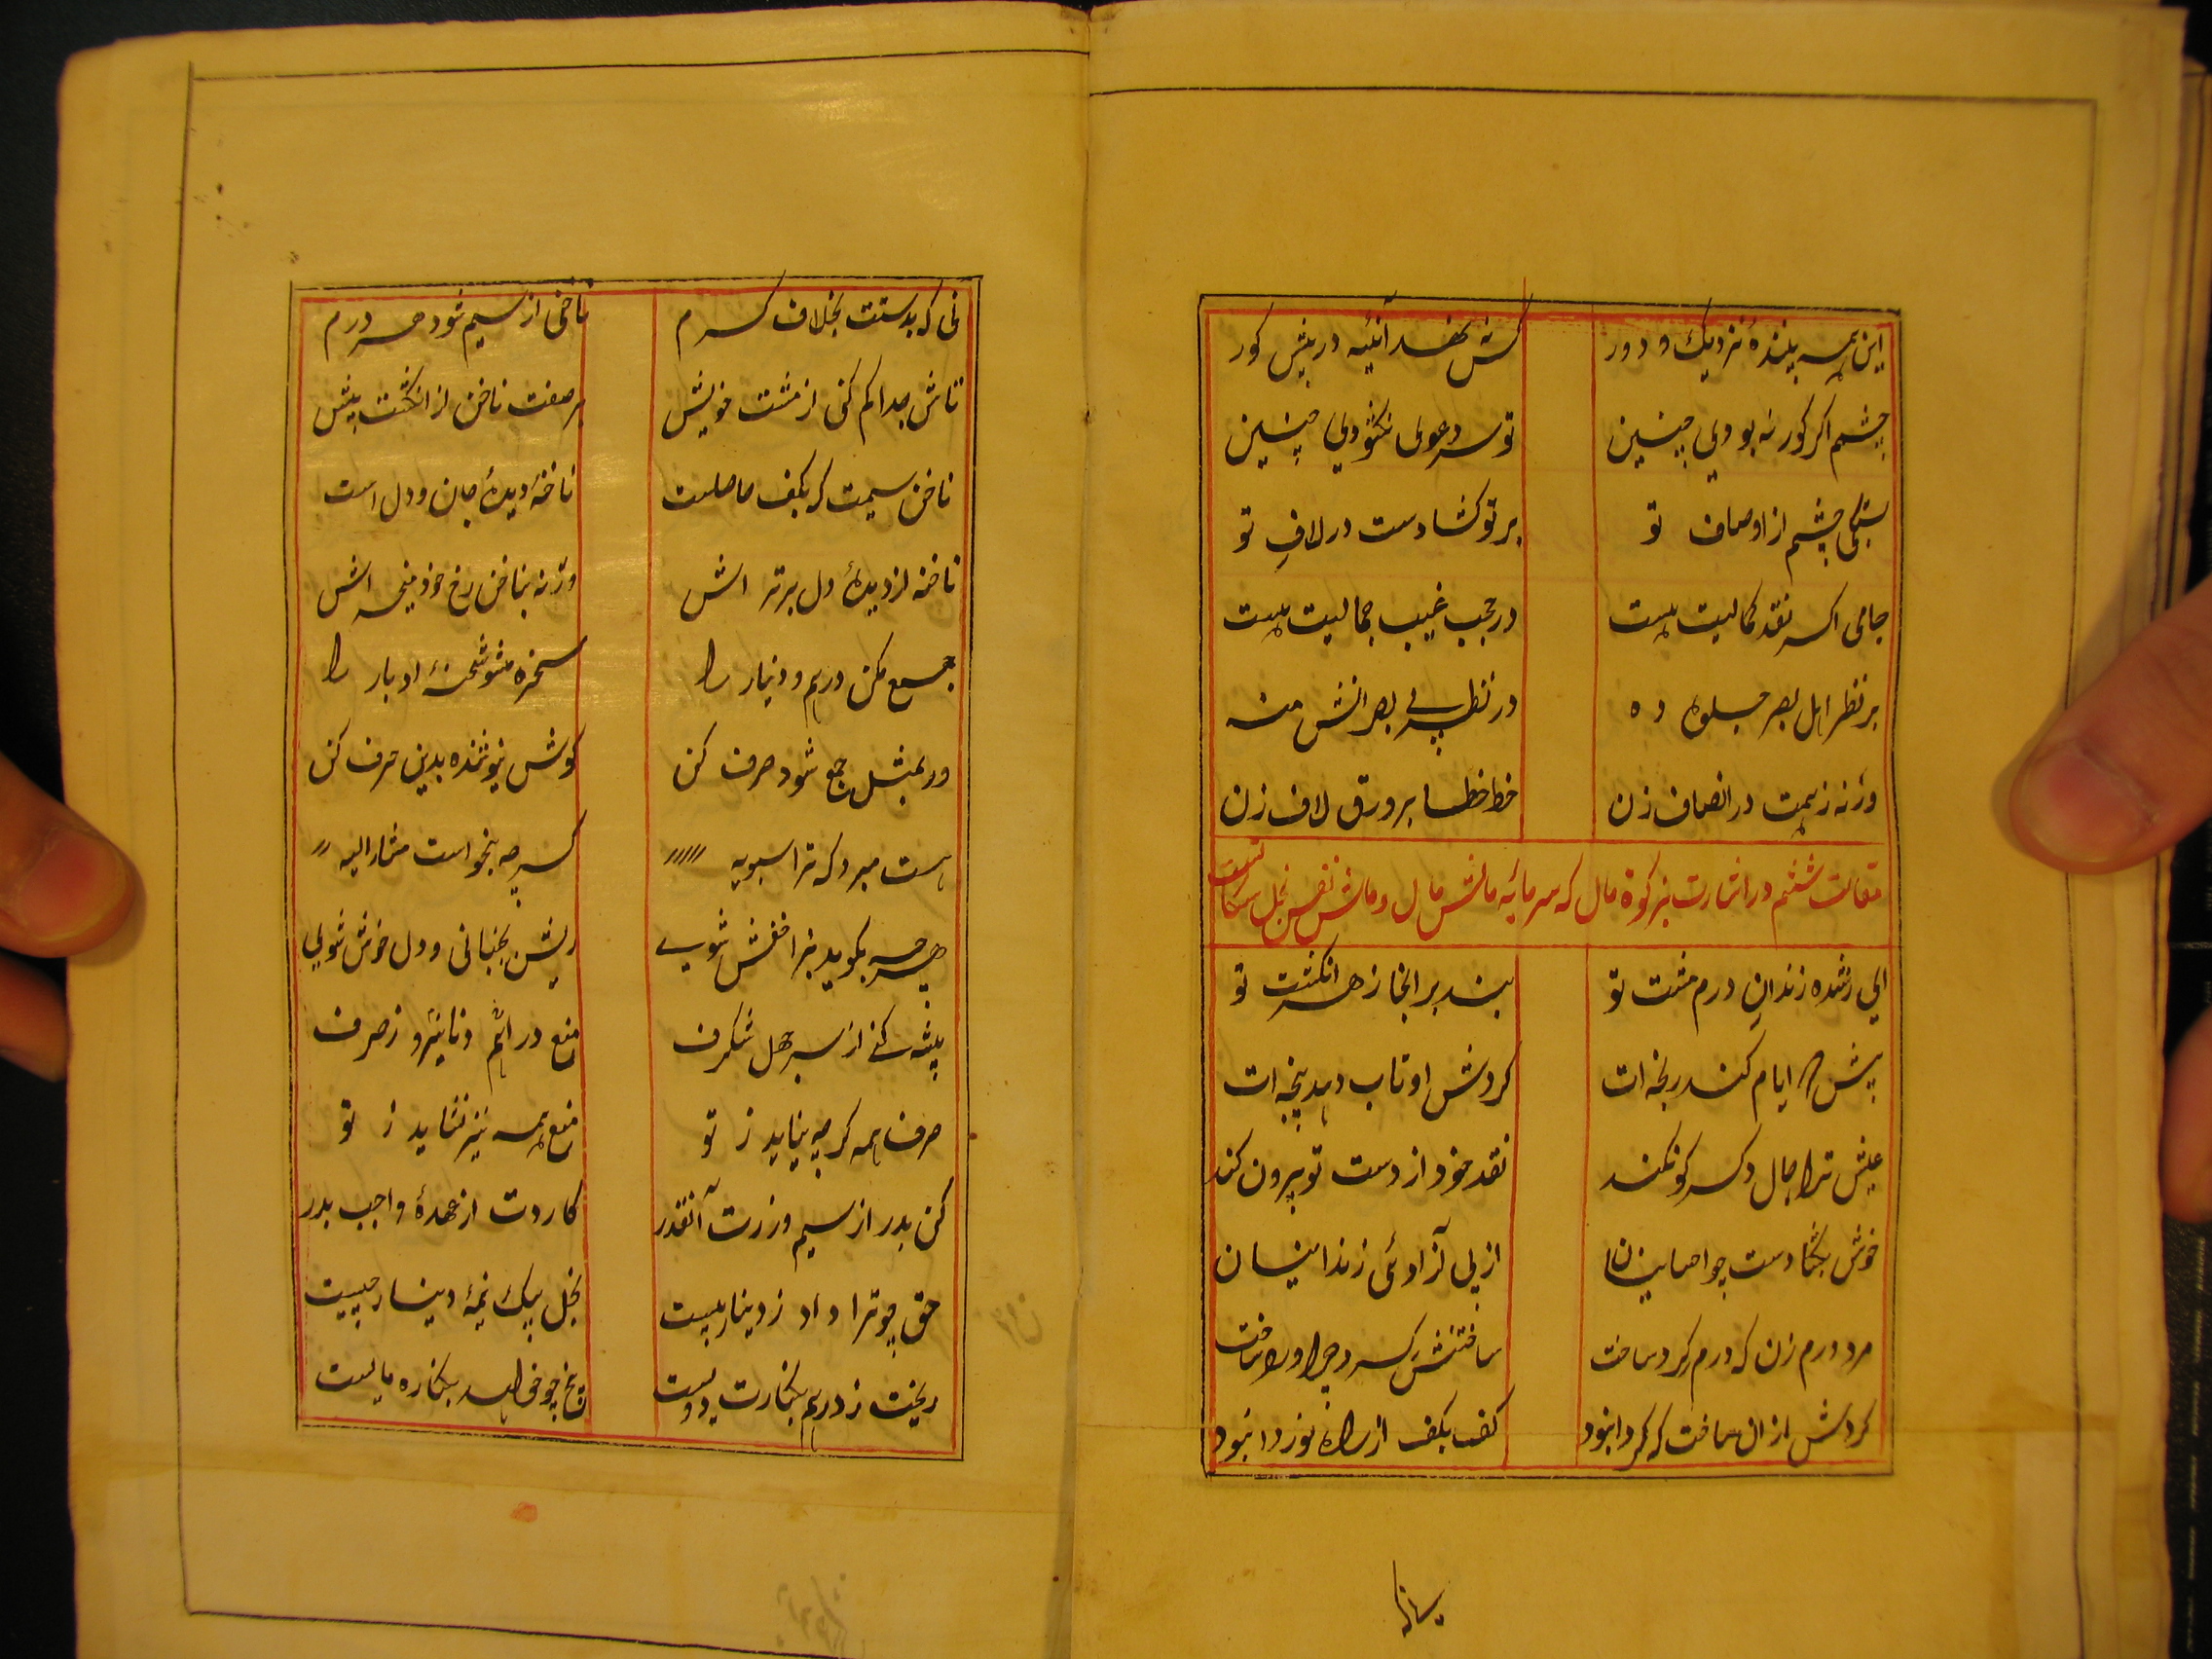 این همه بینندهٔ نزدیک و دور
کس ننهد آئینه در پیش کور
چشم اگر کور نه بودی چنین
تو سر دعوی نگشودی چنین
بستگی چشم از اوصاف تو
بر تو گشادست در لاف تو
جامی اگر نقد کمالیت هست
در حجب غیب جمالیت هست
بر نظر اهل بصر جلوه ده
در نظر بی بصرانش منه
ورنه ز همت در انصاف زن
خط خطا بر ورق لاف زن
مقالت ششم در اشارت بزکوة مال که سرمایهٔ مالش مال و مالش نفس بخل سگالست
ای شده زندان درم مشت تو
بند بر انجا ز هر انگشت تو
پیش که ایام کند رنجه ات
گردش او تاب دهد پنجه ات
عیش ترا حال دگرگون کند
نقد خود از دست تو بیرون کند
خوش بگشا دست چو احسانیان
از پی آزادئی زندانیان
مرد درم زن که درم گرد ساخت
ساختنش گرد چرا و ساخت
گردش از ان ساخت که گردانبود
کف بکف از راه نوردا نبود
نی که بدستت بخلاف کرم
ناخنی از سیم شود هر درم
تاش جدا کم کنی از مشت خویش
بر صفت ناخن از انگشت بیش
ناخن سیمت که بکف حاصلست
ناخنهٔ دیدهٔ جان و دل است
ناخنه از دیدهٔ دل برتر اش
ورنه بناخن رخ خود میخراش
جمع مکن درهم و دینار را
سخره مشو شحنهٔ ادبار را
ور بمثل جمع شود صرف کن
گوش نیوشنده بدین حرف کن
هست مبرد که ترا سیبویه
گرچه بنحو است مشار الیه
هرچه بگوید بنر اخفش شوی
ریش بجنبانی و دل خوش شوی
پیشه کنی از سر جهل شگرف
منع دراهم و دنانیر ز صرف
صرف همه گرچه نیاید ز تو
منع همه نیز نشاید ز تو
کن بدر از سیم و زرت آنقدر
کاردت از عهدهٔ واجب بدر
حق چو ترا داد ز دینار بیست
بخل بیک نیمهٔ دینار چیست
ریخت ز درهم بکنارت دویست
پنج چو خواهد بکناره مایست